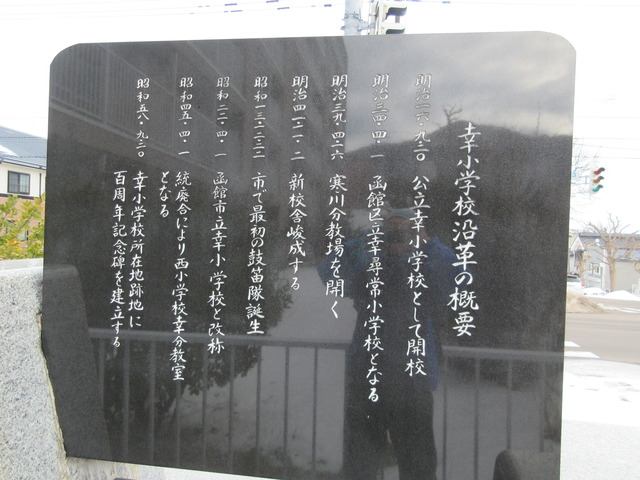 幸小学校沿革の概要
明治一六・九・二〇 公立幸小学校として開校
明治三四・四・一 函館区立幸尋常小学校となる
明治三九・四・二六 寒川分教場を開く
明治四一・二・二 新校舎峻成する
昭和一三・一二・二二 市で最初の鼓笛隊誕生
昭和二二・四・一 函館市立幸小学校と改称
昭和四五・四・一 統廃合により西小学校幸分教室
となる
昭和五八・九・二〇 幸小学校所在地跡地に
百周年記念碑を建立する